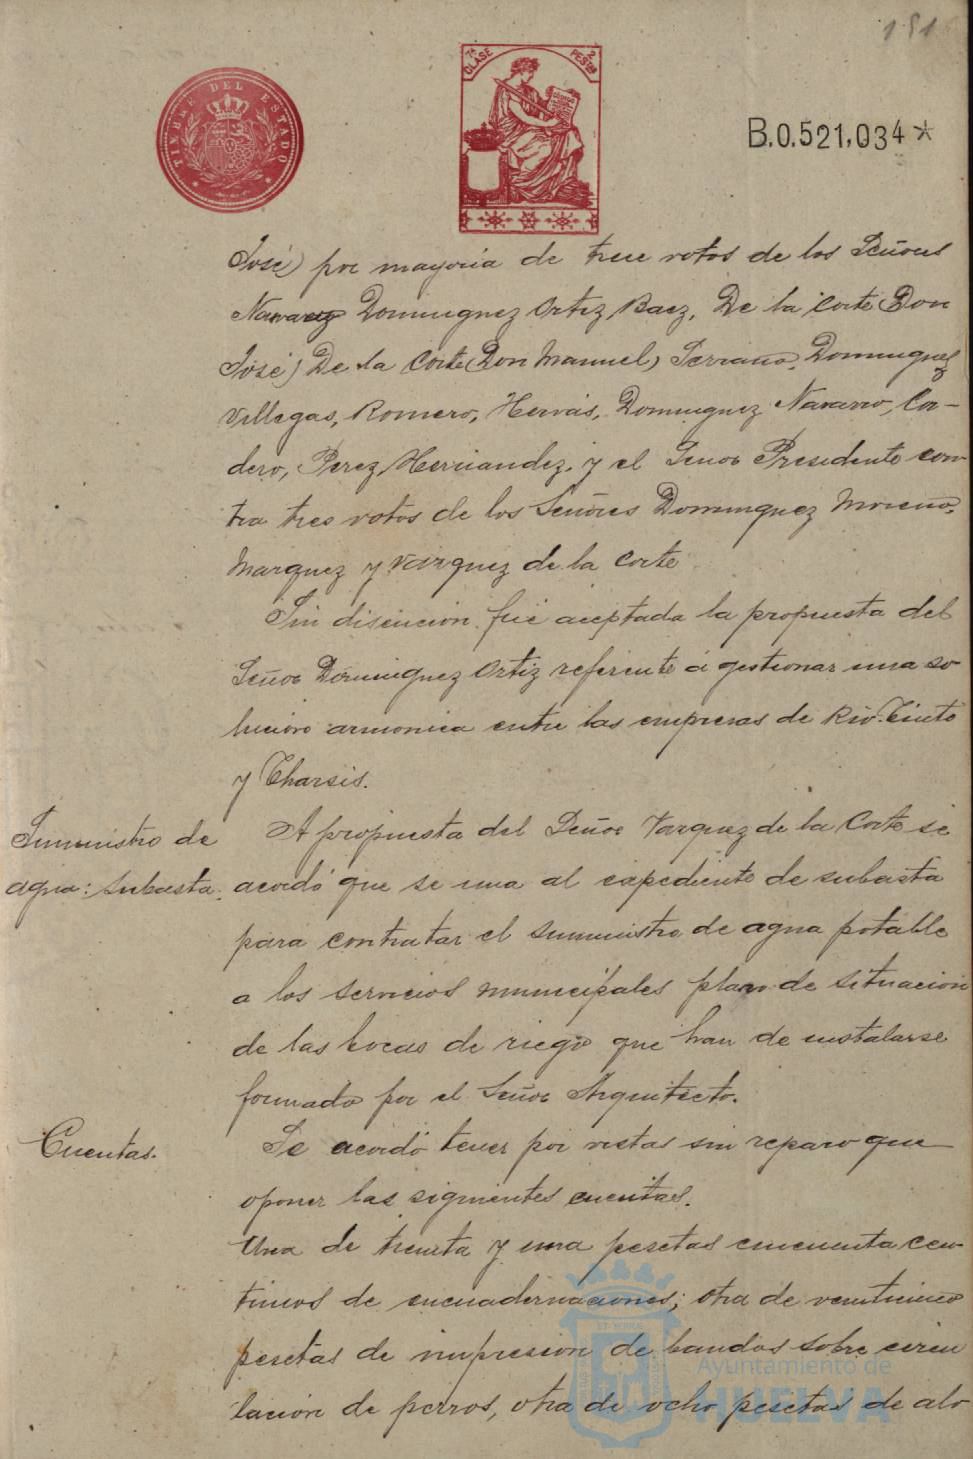 151
TIMBRE DEL ESTADO
7ª CLASE
2 PESTAS
B.0.521,034*
José) por mayoria de trece votos de los Señores
Narvaez Dominguez Ortiz, Baez, De la Corte (Don
José) De la Corte (Don Manuel) Serrano, Dominguez
Villegas, Romero, Hervás, Dominguez Navarro, Cor-
dero, Perez Hernandez, y el Señor Presidente con-
tra tres votos de los Señores Dominguez Moreno,
Marquez y Vazquez de la Corte
Sin discucion fué aceptada la propuesta del
Señor Dominguez Ortiz referente á gestionar una so
lucion armonica entre las empresas de Rio-Tinto
y Tharsis.
Suministro de
agua: subasta.
A propuesta del Señor Vazquez de la Corte se
acordó que se una al expediente de subasta
para contratar el suministro de agua potable
a los servicios municipales plano de situacion
de las bocas de riego que han de instalarse
formado por el Señor Arquitecto.
Cuentas.
Se acordó tener por vistas sin reparo que
oponer las siguientes cuentas.
Una de treinta y una pesetas cincuenta cen-
timos de encuadernaciones; otra de veinticinco
pesetas de impresion de bandos sobre circu
lacion de perros, otra de ocho pesetas de alo
Ayuntamiento de
HUELVA